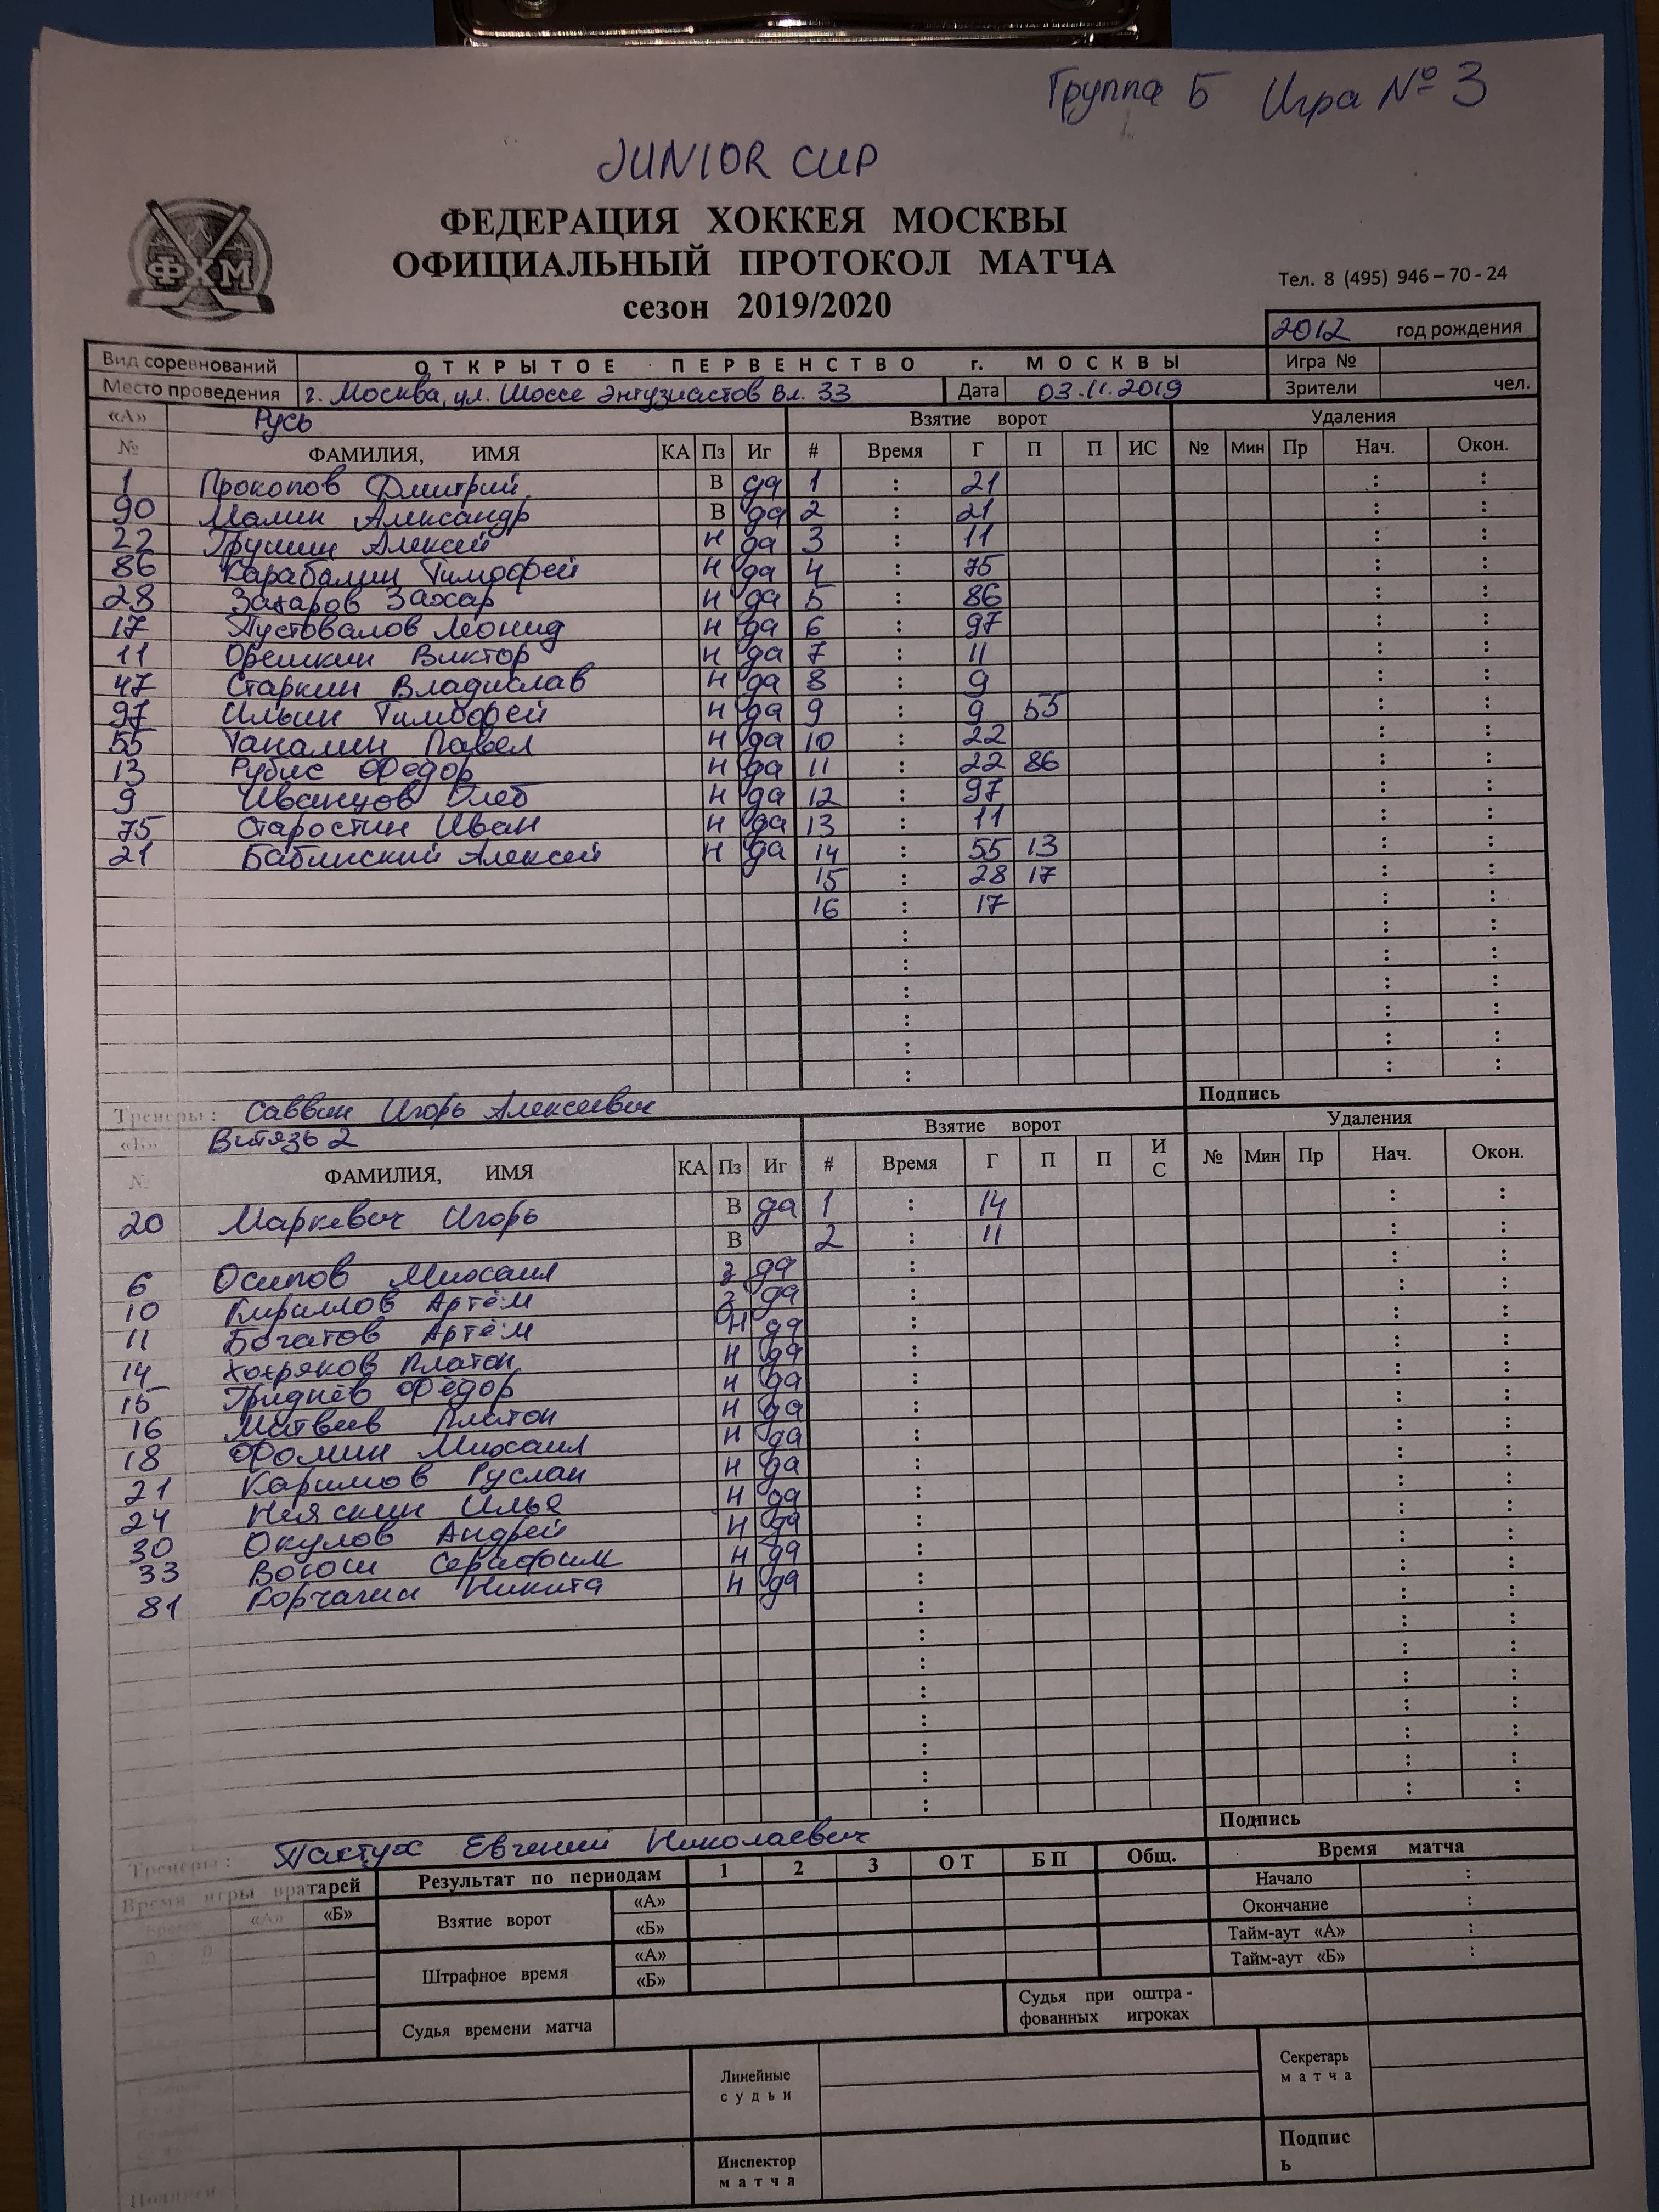 Группа Б Игра № 3
JUNIOR CUP
ФЕДЕРАЦИЯ ХОККЕЯ МОСКВЫ
ОФИЦИАЛЬНЫЙ ПРОТОКОЛ МАТЧА
сезон 2019/2020
ФХМ
Тел. 8 (495) 946 – 70 - 24
2012 год рождения
Вид соревнований ОТКРЫТОЕ ПЕРВЕНСТВО г. МОСКВЫ Игра №
Место проведения г. Москва, ул. Шоссе Энтузиастов вл. 33 Дата 03.11.2019 Зрители чел.
«А» Русь Взятие ворот Удаления
№ ФАМИЛИЯ, ИМЯ КА Пз Иг # Время Г П П ИС № Мин Пр Нач. Окон.
1 Прокопов Дмитрий В да 1 : 21 : :
90 Малин Александр В да 2 : 21 : :
22 Грушин Алексей Н да 3 : 11 : :
86 Карабалин Тимофей Н да 4 : 75 : :
28 Захаров Захар Н да 5 : 86 : :
17 Пустовалов Леонид Н да 6 : 97 : :
11 Орешкин Виктор Н да 7 : 11 : :
47 Старкин Владислав Н да 8 : 9 : :
97 Ильин Тимофей Н да 9 : 9 55 : :
55 Таналин Павел Н да 10 : 22 : :
13 Рубис Федор Н да 11 : 22 86 : :
9 Иванцов Глеб Н да 12 : 97 : :
75 Старостин Иван Н да 13 : 11 : :
21 Бабинский Алексей Н да 14 : 55 13 : :
15 : 28 17 : :
16 : 17 : :
: : :
: : :
: : :
: : :
: : :
: : :
Тренеры : Саввин Игорь Алексеевич Подпись
«Б» Витязь 2 Взятие ворот Удаления
№ ФАМИЛИЯ, ИМЯ КА Пз Иг # Время Г П П ИС № Мин Пр Нач. Окон.
20 Маркевич Игорь В да 1 : 14 : :
В 2 : 11 : :
6 Осипов Михаил З да : : :
10 Кириллов Артём З да : : :
11 Богатов Артём Н да : : :
14 Хохряков Платон Н да : : :
15 Гриднёв Фёдор Н да : : :
16 Матвеев Платон Н да : : :
18 Фомин Михаил Н да : : :
21 Каримов Руслан Н да : : :
24 Неяскин Илья Н да : : :
30 Окулов Андрей Н да : : :
33 Серафим Н да : : :
81 Корчагин Никита Н да : : :
: : :
: : :
: : :
: : :
: : :
: : :
: : :
: : :
Тренеры : Пастух Евгений Николаевич Подпись
Время игры вратарей Результат по периодам 1 2 3 ОТ БП Общ. Время матча
Время «А» «Б» Взятие ворот «А» Начало :
0 : 0 «Б» Окончание :
Штрафное время «А» Тайм-аут «А» :
«Б» Тайм-аут «Б» :
Судья времени матча Судья при оштра - фованных игроках
Линейные судьи Секретарь матча
Инспектор матча Подпис ь